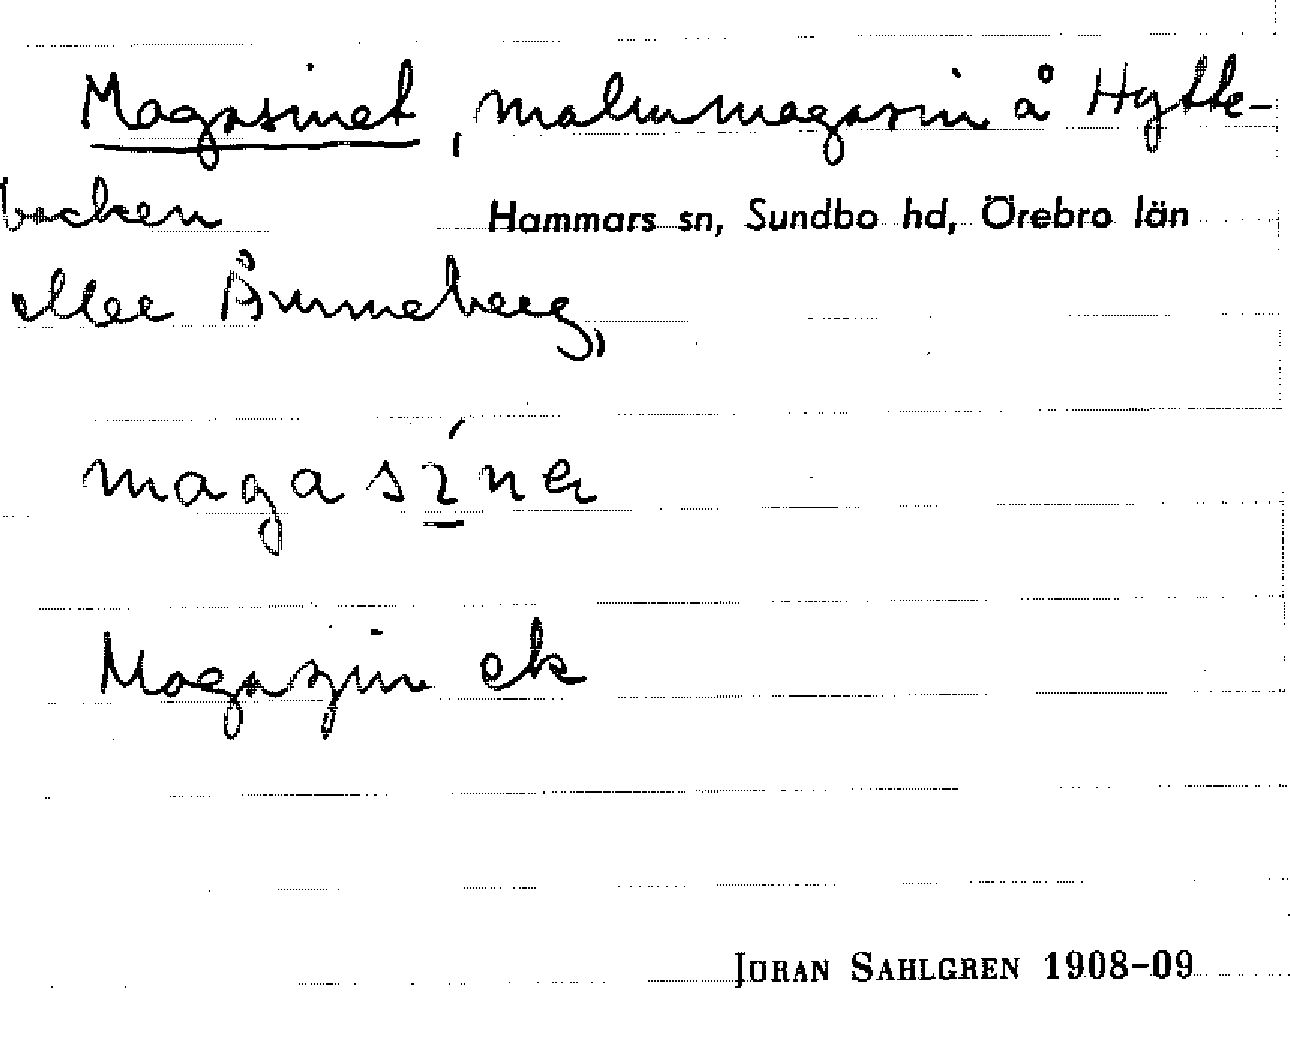 Magasinet, malmmagasin å Hytte-
backen
Hammars sn, Sundbo hd, Örebro län
eller Åmmeberg,
magasínen
Magazin ek
JÖRAN SAHLGREN 1908-09